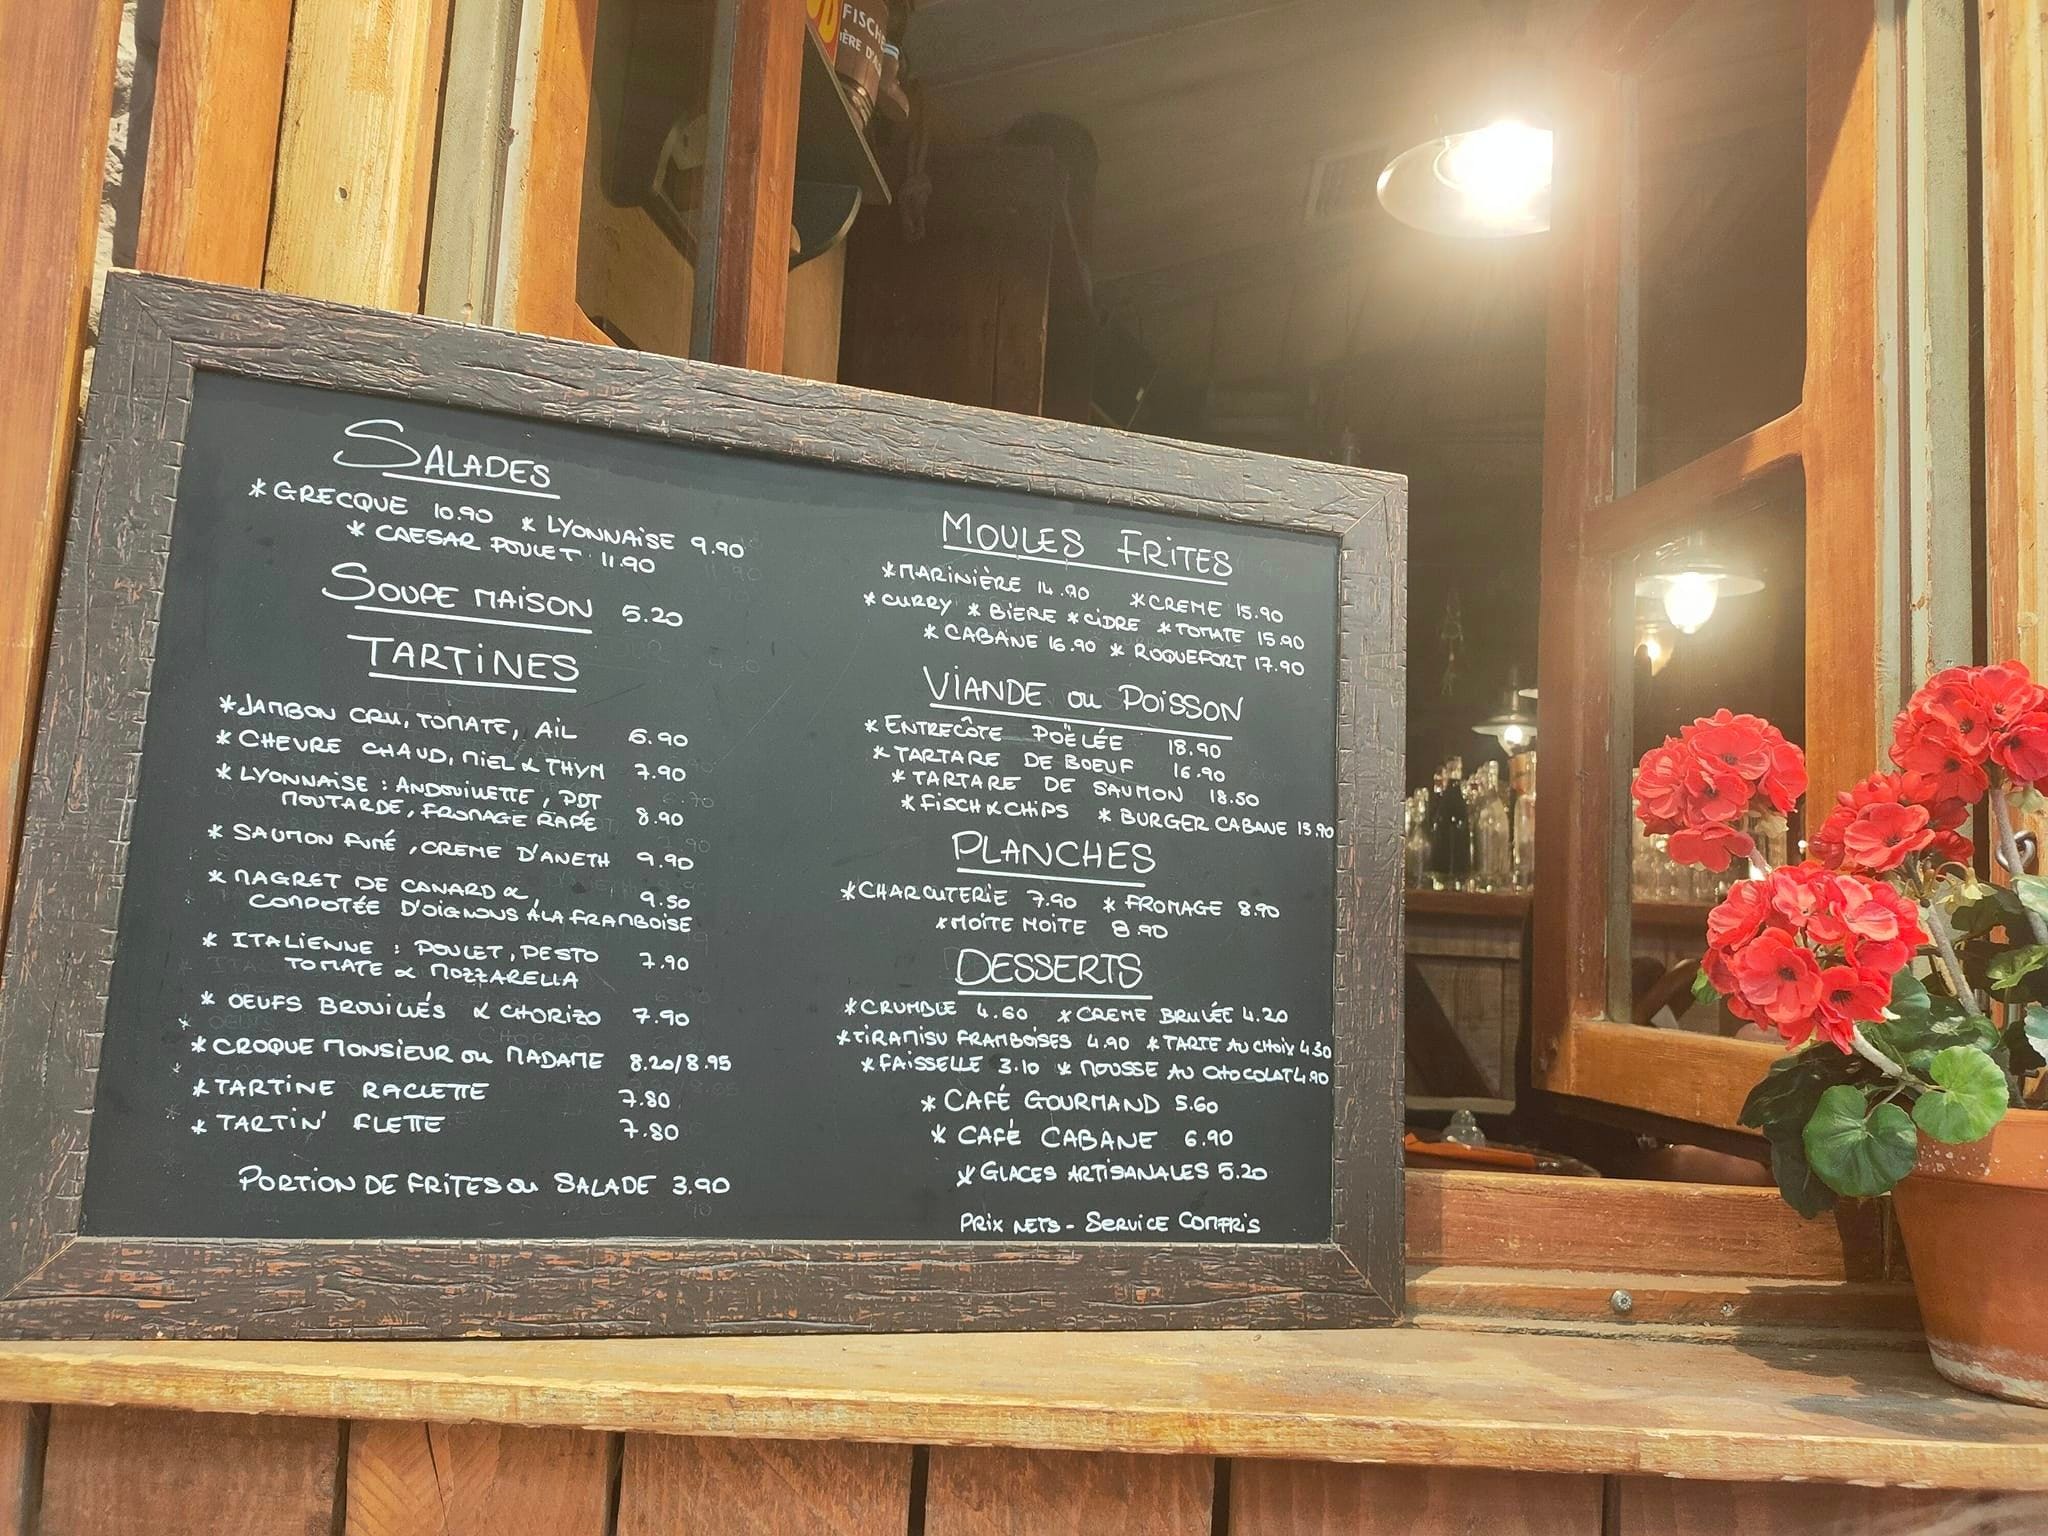 FISCHE
IÈRE D'A
SALADES
*GRECQUE 10.90 * LYONNAISE 9.90
* CAESAR POULET 11.90
SOUPE MAISON 5.20
TARTINES
*JAMBON CRU, TOMATE, AIL 6.90
* CHEVRE CHAUD, MIEL & THYM 7.90
* LYONNAISE : ANDOUILLETTE, PDT
MOUTARDE, FROMAGE RAPÉ 8.90
* SAUMON FUMÉ, CREME D'ANETH 9.90
* MAGRET DE CANARD & 9.50
COMPOTÉE D'OIGNOUS À LA FRAMBOISE
* ITALIENNE : POULET, PESTO 7.90
TOMATE & MOZZARELLA
* OEUFS BROUILLÉS & CHORIZO 7.90
* CROQUE MONSIEUR OU MADAME 8.20/8.95
* TARTINE RACLETTE 7.80
* TARTIN' FLETTE 7.80
PORTION DE FRITES OU SALADE 3.90
MOULES FRITES
*MARINIÈRE 14.90 *CREME 15.90
* CURRY * BIERE *CIDRE *TOMATE 15.90
* CABANE 16.90 * ROQUEFORT 17.90
VIANDE OU POISSON
* ENTRECÔTE POËLÉE 18.90
* TARTARE DE BOEUF 16.90
* TARTARE DE SAUMON 18.50
* FISCH & CHIPS * BURGER CABANE 15.90
PLANCHES
*CHARCUTERIE 7.90 * FROMAGE 8.90
*MOITE MOITE 8.90
DESSERTS
*CRUMBLE 4.60 *CREME BRULÉE 4.20
*TIRAMISU FRAMBOISES 4.90 *TARTE AU CHOIX 4.30
*FAISSELLE 3.10 * MOUSSE AU CHOCOLAT 4.90
* CAFÉ GOURMAND 5.60
* CAFÉ CABANE 6.90
*GLACES ARTISANALES 5.20
PRIX NETS - SERVICE COMPRIS